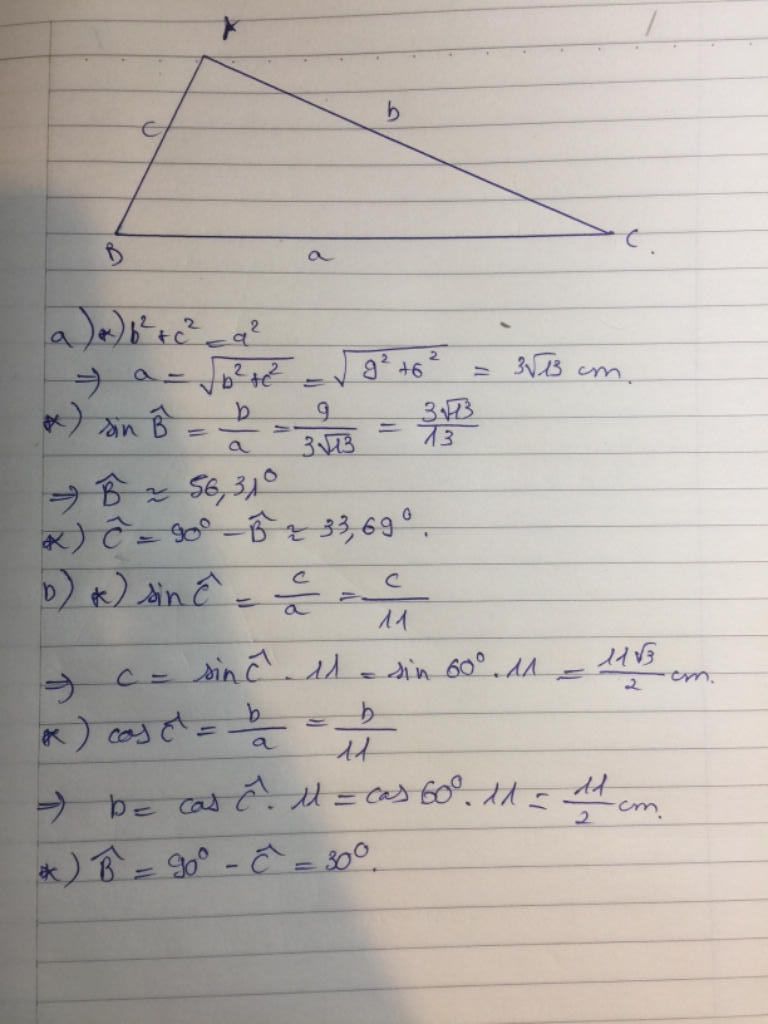 A
c
b
B
a
C.
a) *) b² + c² = a²
⇒ a = √(b² + c²) = √(9² + 6²) = 3√13 cm.
*) sin B̂ = b/a = 9/(3√13) = 3√13/13
⇒ B̂ ≈ 56,31°
*) Ĉ = 90° - B̂ ≈ 33,69°.
b) *) sin Ĉ = c/a = c/11
⇒ c = sin Ĉ . 11 = sin 60° . 11 = 11√3/2 cm.
*) cos Ĉ = b/a = b/11
⇒ b = cos Ĉ . 11 = cos 60° . 11 = 11/2 cm.
*) B̂ = 90° - Ĉ = 30°.